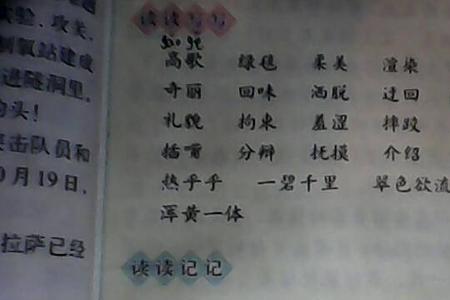 验、攻关,
制氧站建成
进隧洞里,
头!
击队员和
0月19日,
拉萨已经
读读写写
gāo gē
高歌 绿毯 柔美 渲染
奇丽 回味 洒脱 迂回
礼貌 拘束 羞涩 摔跤
插嘴 分辩 抚摸 介绍
热乎乎 一碧千里 翠色欲流
浑黄一体
读读记记